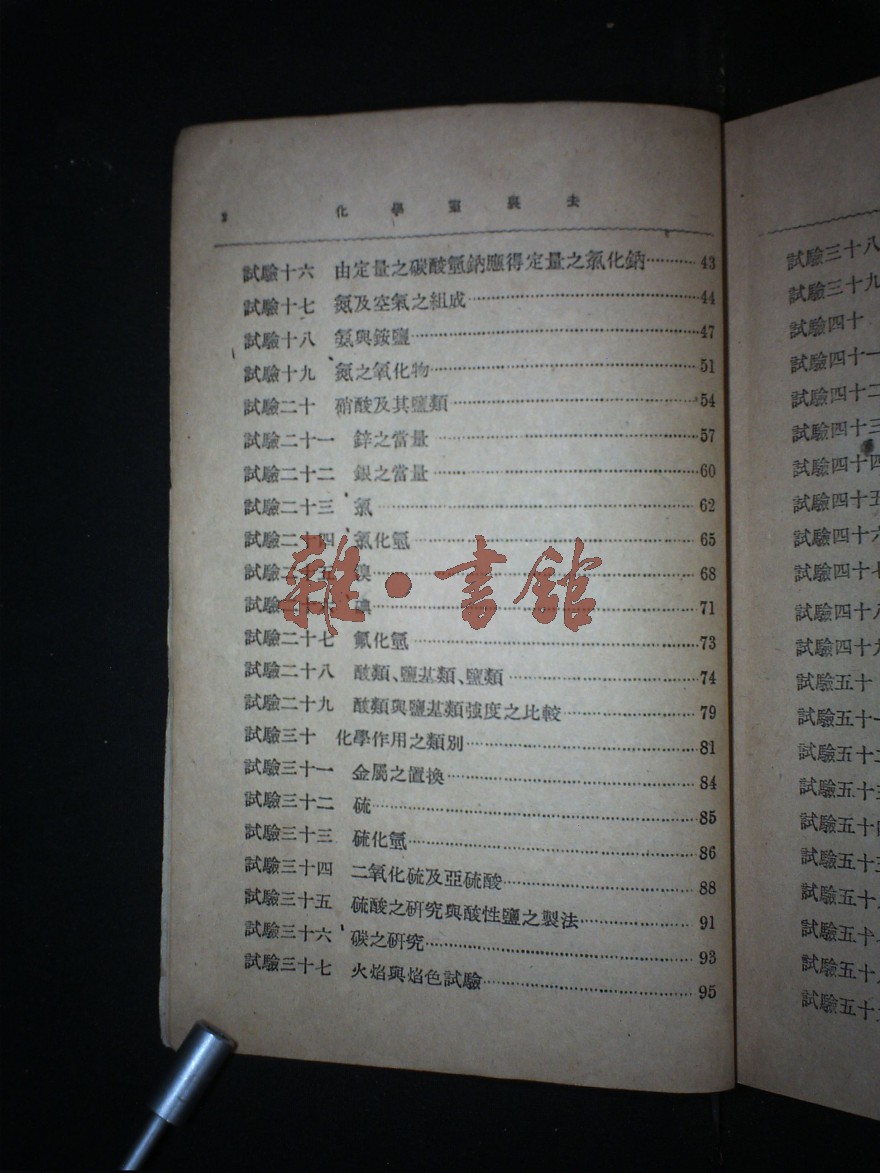 2 化學室裏去
試驗十六 由定量之碳酸氫鈉應得定量之氯化鈉………43
試驗十七 氮及空氣之組成………44
試驗十八 氨與銨鹽………47
試驗十九 氮之氧化物………51
試驗二十 硝酸及其鹽類………54
試驗二十一 鋅之當量………57
試驗二十二 銀之當量………60
試驗二十三 氯………62
試驗二十四 氯化氫………65
試驗二十五 溴………68
試驗二十六 碘………71
試驗二十七 氟化氫………73
試驗二十八 酸類、鹽基類、鹽類………74
試驗二十九 酸類與鹽基類強度之比較………79
試驗三十 化學作用之類別………81
試驗三十一 金屬之置換………84
試驗三十二 硫………85
試驗三十三 硫化氫………86
試驗三十四 二氧化硫及亞硫酸………88
試驗三十五 硫酸之研究與酸性鹽之製法………91
試驗三十六 碳之研究………93
試驗三十七 火焰與焰色試驗………95
雜·書館
試驗三十八
試驗三十九
試驗四十
試驗四十一
試驗四十二
試驗四十三
試驗四十四
試驗四十五
試驗四十六
試驗四十七
試驗四十八
試驗四十九
試驗五十
試驗五十一
試驗五十二
試驗五十三
試驗五十四
試驗五十
試驗五十
試驗五十
試驗五十八
試驗五十